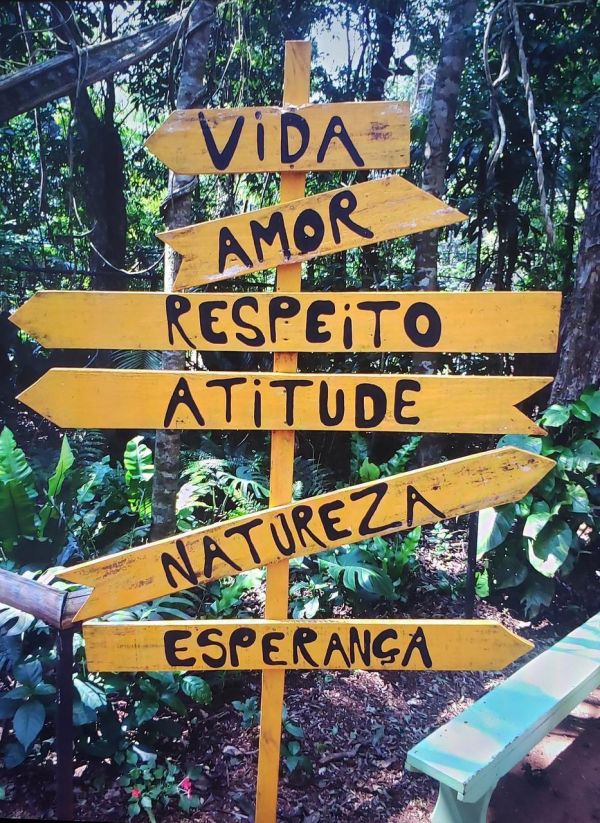 ViDA
AMOR
RESPEiTO
ATiTUDE
NATUREZA
ESPERANÇA